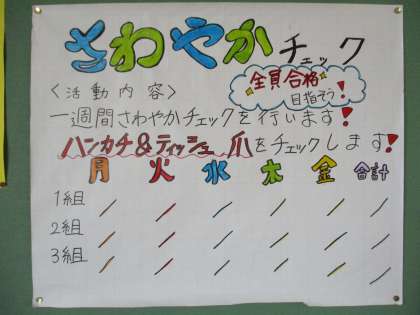 さわやかチェック
全員合格
目指そう!
<活動内容>
一週間さわやかチェックを行います!
ハンカチ&ティッシュ 爪をチェックします!
月 火 水 木 金 合計
1組 / / / / / /
2組 / / / / / /
3組 / / / / / /